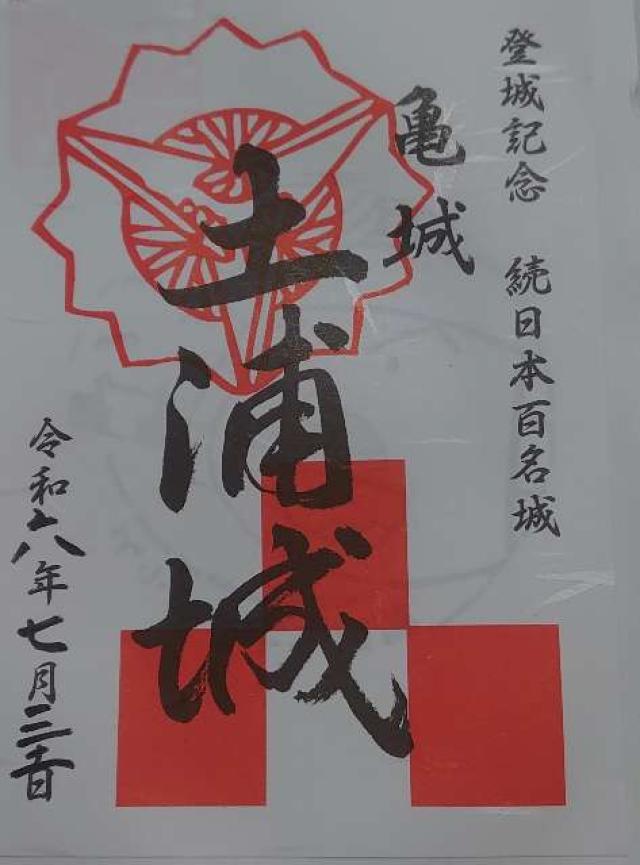 登城記念 続日本百名城
亀城
土浦城
令和六年七月三十日